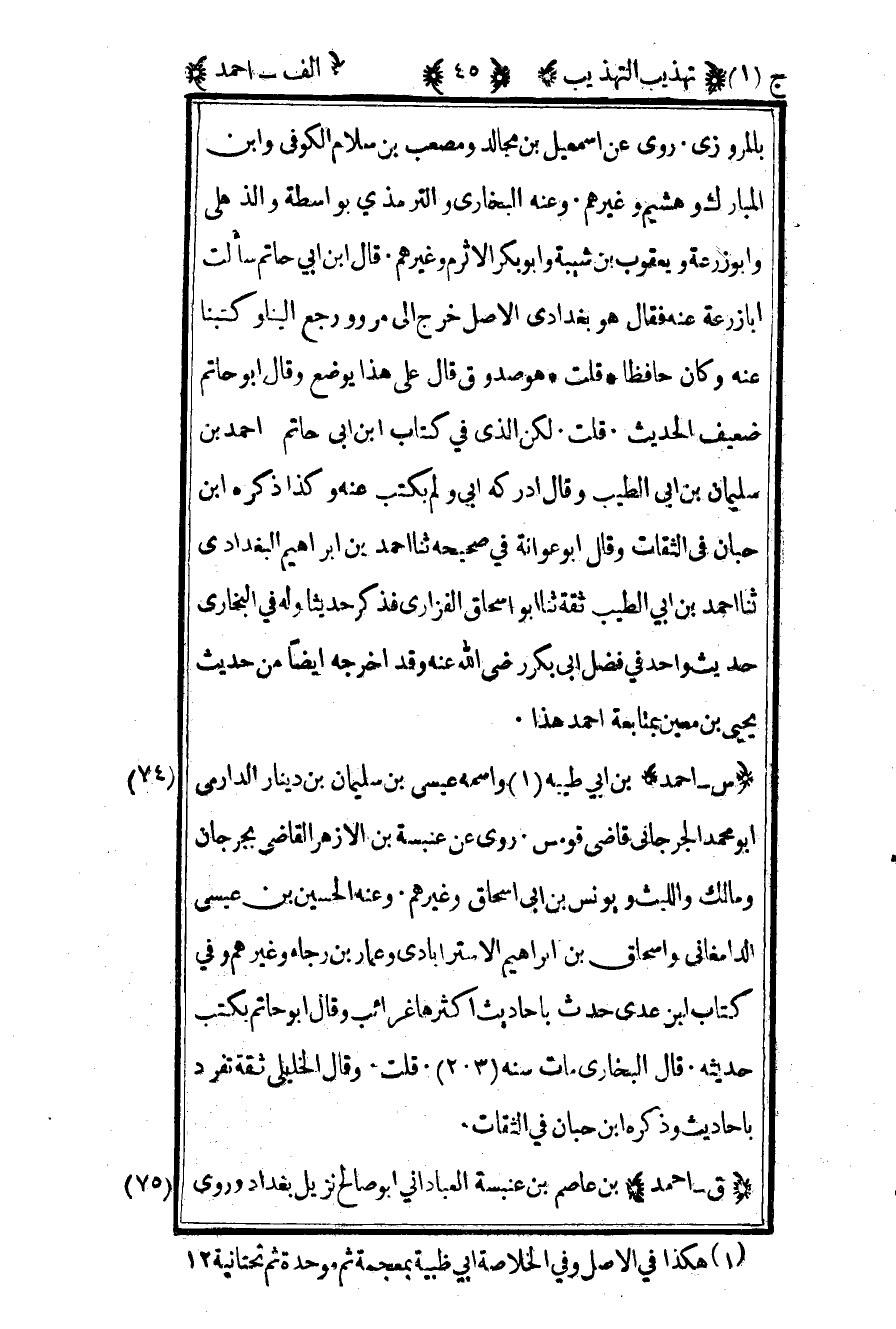 ج (١) ﴿ تهذيب التهذيب ﴾ ﴿ ٤٥ ﴾ ﴿ الف ــ احمد ﴾
بالمروزى · روى عن اسمعيل بن مجالد ومصعب بن سلام الكوفى وابن
المبارك و هشيم و غيرهم · وعنه البخارى و الترمذي بواسطة والذهلى
وابوزرعة و يعقوب بن شيبة وابوبكر الاثرم وغيرهم · قال ابن ابي حاتم سألت
ابازرعة عنه فقال هو بغدادى الاصل خرج الى مرو و رجع الينا و كتبنا
عنه وكان حافظا * قلت * هو صدوق قال على هذا يوضع وقال ابو حاتم
ضعيف الحديث · قلت · لكن الذى في كتاب ابن ابى حاتم احمد بن
سليمان بن ابى الطيب و قال ادركه ابي و لم يكتب عنه و كذا ذكره ابن
حبان فى الثقات وقال ابو عوانة في صحيحه ثنا احمد بن ابراهيم البغدادى
ثنا احمد بن ابي الطيب ثقة ثنا ابو اسحاق الفزارى فذكر حديثا وله في البخارى
حديث واحد في فضل ابى بكر رضى الله عنه وقد اخرجه ايضاً من حديث
يحيى بن معين بمتابعة احمد هذا ·
﴿ س ــ احمد ﴾ بن ابي طيبه (١) واسمه عيسى بن سليمان بن دينار الدارمى (٧٤)
ابو محمد الجرجانى قاضى قومس · روى عن عنبسة بن الازهر القاضى بجرجان
ومالك والليث و يونس بن ابى اسحاق وغيرهم · وعنه الحسين بن عيسى
الدامغانى واسحاق بن ابراهيم الاسترابادى وعمار بن رجاء وغيرهم و في
كتاب ابن عدى حدث باحاديث اكثرها غرائب وقال ابو حاتم يكتب
حديثه · قال البخارى مات سنه (٢٠٣) · قلت · وقال الخليلى ثقة تفرد
باحاديث وذكره ابن حبان في الثقات ·
﴿ ق ــ احمد ﴾ بن عاصم بن عنبسة العباداني ابو صالح نزيل بغداد وروى (٧٥)
(١) هكذا في الاصل وفي الخلاصة ابي ظبية بمعجمة ثم موحدة ثم تحتانية ١٢